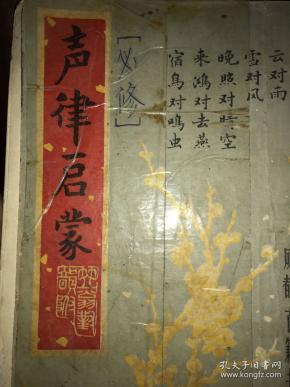 声律启蒙
[必修]
云对雨
雪对风
晚照对晴空
来鸿对去燕
宿鸟对鸣虫
孔夫子旧书网